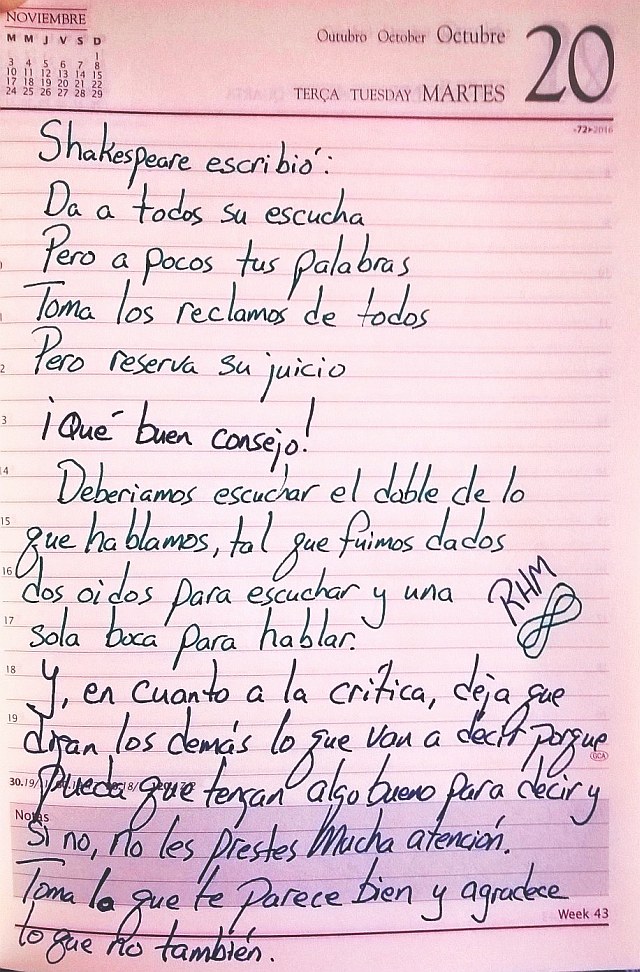 NOVIEMBRE
M M J V S D
1
3 4 5 6 7 8
10 11 12 13 14 15
17 18 19 20 21 22
24 25 26 27 28 29
Outubro October Octubre
20
TERÇA TUESDAY MARTES
72 2016
Shakespeare escribió:
Da a todos su escucha
Pero a pocos tus palabras
Toma los reclamos de todos
2 Pero reserva su juicio
3 ¡Qué buen consejo!
14 Deberiamos escuchar el doble de lo
15 que hablamos, tal que fuimos dados
16 dos oidos para escuchar y una
RHM
17 sola boca para hablar.
18 Y, en cuanto a la crítica, deja que
19 digan los demás lo que van a decir porque
GCA
pueda que tengan algo bueno para decir y
Notas
Si no, no les prestes mucha atención.
Toma lo que te parece bien y agradece
Week 43
lo que no también.